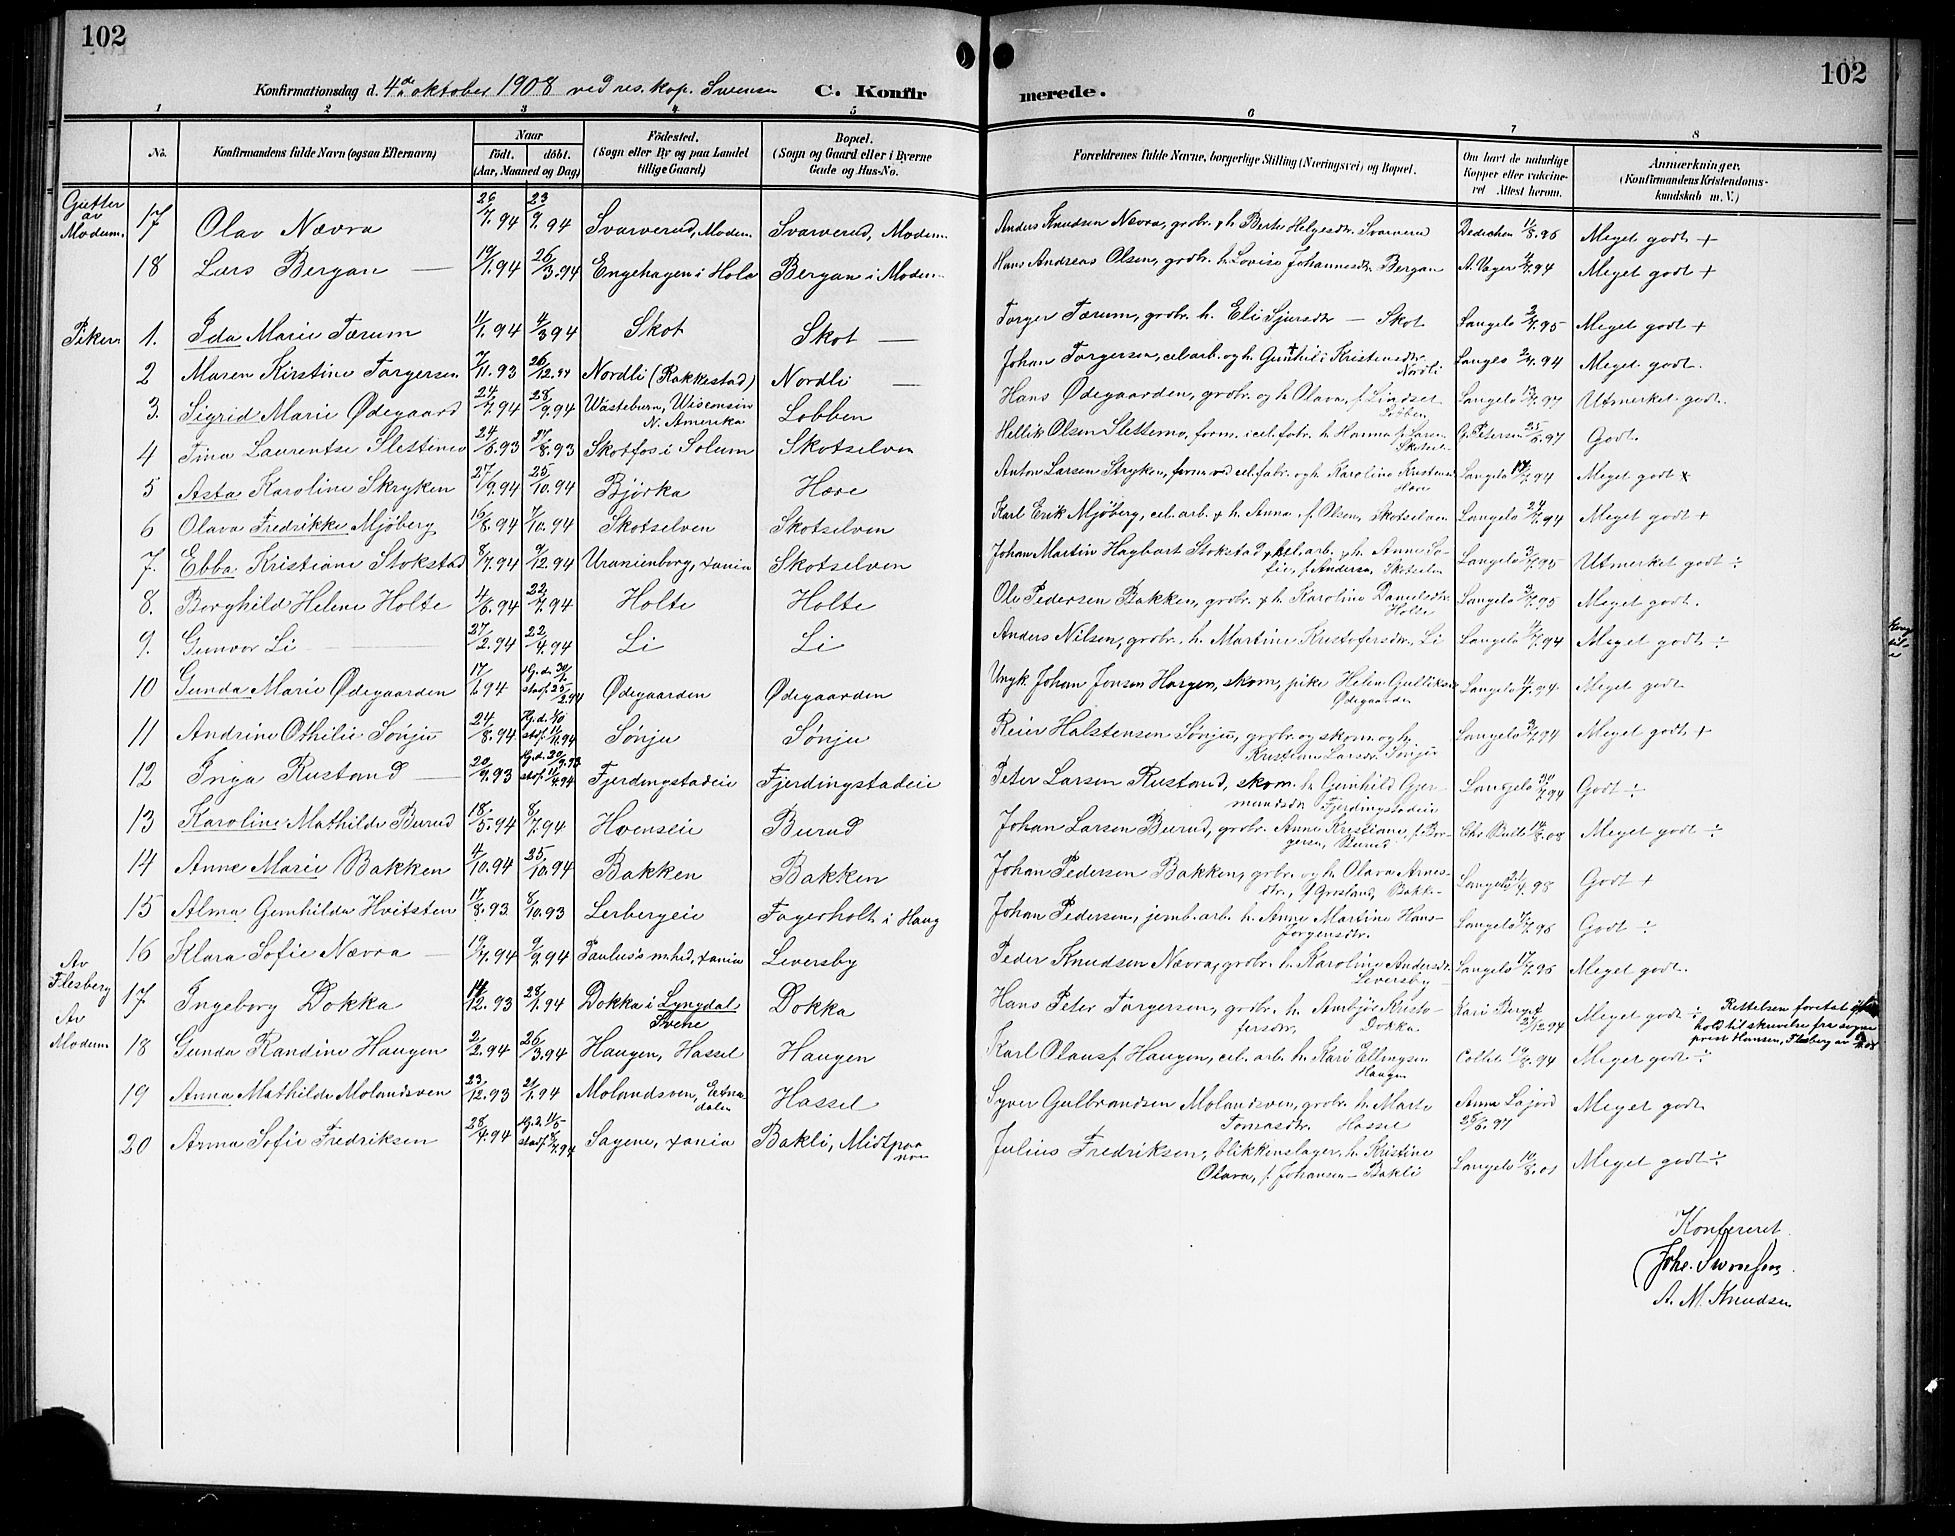 102
102
Konfirmationsdag d. 4de oktober 1908 ved res. kap. Svensen
C. Konfir merede.
1 2 3 4 5 6 7 8
No.
Konfirmandens fulde Navn (ogsaa Efternavn)
Naar
födt. döbt.
(Aar, Maaned og Dag)
Födested.
(Sogn eller By og paa Landet
tillige Gaard)
Bopæl.
(Sogn og Gaard eller i Byerne
Gade og Hus-No.
Forældrenes fulde Navne, borgerlige Stilling (Næringsvei) og Bopæl.
Om havt de naturlige
Kopper eller vakcine-
ret Attest herom.
Anmærkninger.
(Konfirmandens Kristendoms-
kundskab m. V.)
Gutter
av
Modum.
17 Olav Nævra 26/7.94 23/9.94 Svarverud, Modum. Svarverud, Modum. Anders Knudsen Nævra, grdbr. & h. Berte Helgesdtr. Svarverud Dedichen 11/8.96 Meget godt +
18 Lars Bergan — 19/1.94 26/3.94 Engehagen i Hole Bergan i Modum. Hans Andreas Olsen, grdbr. h. Lovise Johannesdtr. Bergan A. Vager Meget godt +
Piker.
1. Ida Marie Tærum 11/1.94 4/3 94 Skot Skot — Torger Tærum, grdbr. h. Eli Sjursdtr — Skot Langelo 2/7.95 Meget godt +
2 Maren Kirstine Torgersen 7/11.93 26/12.94 Nordli (Rakkestad) Nordli — Johan Torgersen, cel.arb. og h. Gunhild Kristensdtr.
Nordli Langelo 2/7.94 Meget godt.
3. Sigrid Marie Ødegaard 24/7.94 28/9.94 Wasteburn, Wisconsin
N. Amerika Lobben Hans Ødegaarden, grdbr. og h. Olava, f. Lindset
Lobben Langelo 13/7.97 Utmerket godt.
4 Tina Laurentse Slettemo 24/6.93 27/8.93 Skotfos i Solum Skotselven Hellik Olsen Slettemo, form. i cel.fabr. h. Hanna f. Laren
Skotselv G. Petersen 25/6.97 Godt.
5 Asta Karoline Skryken 27/9.94 25/10.94 Bjørka Hære Anton Larsen Stryken, form. ved cel.fabr. og h. Karoline Kristensd
Hære Langelo 17/7.94 Meget godt +
6 Olava Fredrikke Mjøberg 16/8.94 7/10.94 Skotselven Skotselven Karl Erik Mjøberg, cel.arb. & h. Anna f. Olsen, Skotselven Langelo 24/7.94 Meget godt +
7. Ebba Kristiane Stokstad 8/7.94 9/12.94 Uranienborg, Xania Skotselven Johan Martin Hagbart Stokstad, cel.arb. & h. Anne So-
fie, f. Andersen, Skotselv Langelo 3/7.95 Utmerket godt ÷
8. Borghild Helene Holte 4/6.94 22/7.94 Holte Holte Ole Pedersen Bakken, grdbr. & h. Karoline Danielsdtr.
Holte Langelo 2/7.95 Meget godt.
9. Gunvor Li 27/2.94 22/4.94 Li Li Anders Nilsen, grdbr. h. Martine Kristofersdtr. Li Langelo 11/7.94 Meget godt ÷
10 Gunda Marie Ødegaarden 17/1.94 Hj.d. 30/1
stadf. 25/2.94 Ødegaarden Ødegaarden Ungk. Johan Jonsen Horgen, skom., pike Helene Gulliksd
Ødegaarden Langelo 11/7.94 Meget godt
11 Andrine Othilie Sønju 24/8.94 Hj.d. 1/10
stadf. 11/11.94 Sønju Sønju Reier Halstensen Sønju, grdbr. og skom. og h.
Kristiane Larsdtr. Sønju Langelo Meget godt +
12 Inga Rustand — 20/9.93 Hj.d. 22/9.93
stadf. Fjerdingstadeie Fjerdingstadeie Peter Larsen Rustand, skom. h. Gunhild Gjer-
mundsdtr. Fjerdingstadeie Langelo 24/7.94 Godt ÷
13 Karoline Mathilde Burud 18/5.94 8/7.94 Hvenseie Burud Johan Larsen Burud, grdbr. Anne Kristiane, f. Bor-
gersen, Burud Chr. Buttb 14/8.08 Meget godt ÷
14 Anne Marie Bakken 4/10.94 25/10.94 Bakken Bakken Johan Pedersen Bakken, grbr. og h. Olava Arnes-
dtr., f. Grøsland, Bakke- Langelo Godt +
15 Alma Gunhilda Hvitsten 17/8.93 8/10.93 Lerbergeie Fagerholt i Haug Johan Pedersen, jernb. arb. h. Anne Martine Hans-
Jørgensdtr. Langelo Godt ÷
16 Klara Sofie Nævra — 19/7.94 9/9.94 Paulus's m.hed, Xania Leversby Peder Knudsen Nævra, grdbr. h. Karoline Andersdtr.
Leversby — Langelo 17/7.95 Meget godt.
Av
Flesberg
17 Ingeborg Dokka 14/12.93 28/1.94 Dokka i Lyngdal.
Svene Dokka Hans Peter Torgersen, grdbr. h. Anebjør Kristo-
fersdtr. Dokka Kari Berget 27/12.94 Meget godt ÷ Rettelsen foretat i
hold til skrivelse fra sogne
prest Hansen, Flesberg av
Av
Modum.
18 Gunda Randine Haugen 2/2.94 26/3.94 Haugen, Hassel Haugen Karl Olaus f. Haugen, cel. arb. h. Kari Ellingsen
Haugen Collet 19/8.94 Meget godt ÷
19 Anna Mathilde Molandsven 23/12.93 21/1.94 Molandsven, Etne
dalen Hassel Syver Gulbrandsen Molandsven, grdbr. h. Marte
Tomasdtr. Hassel Anne Lajord
25/6.97 Meget godt
20 Anna Sofie Fredriksen 28/4.94 Hj.d. 11/5
stadf. Sagene, Xania Bakli, Midtpaa
Julius Fredriksen, blikkenslager, h. Kristine
Olava, f. Johansen — Bakli Langelo 10/8.01 Meget godt ÷
Konfereret
Johs. Svensen
A. M. Knudsen